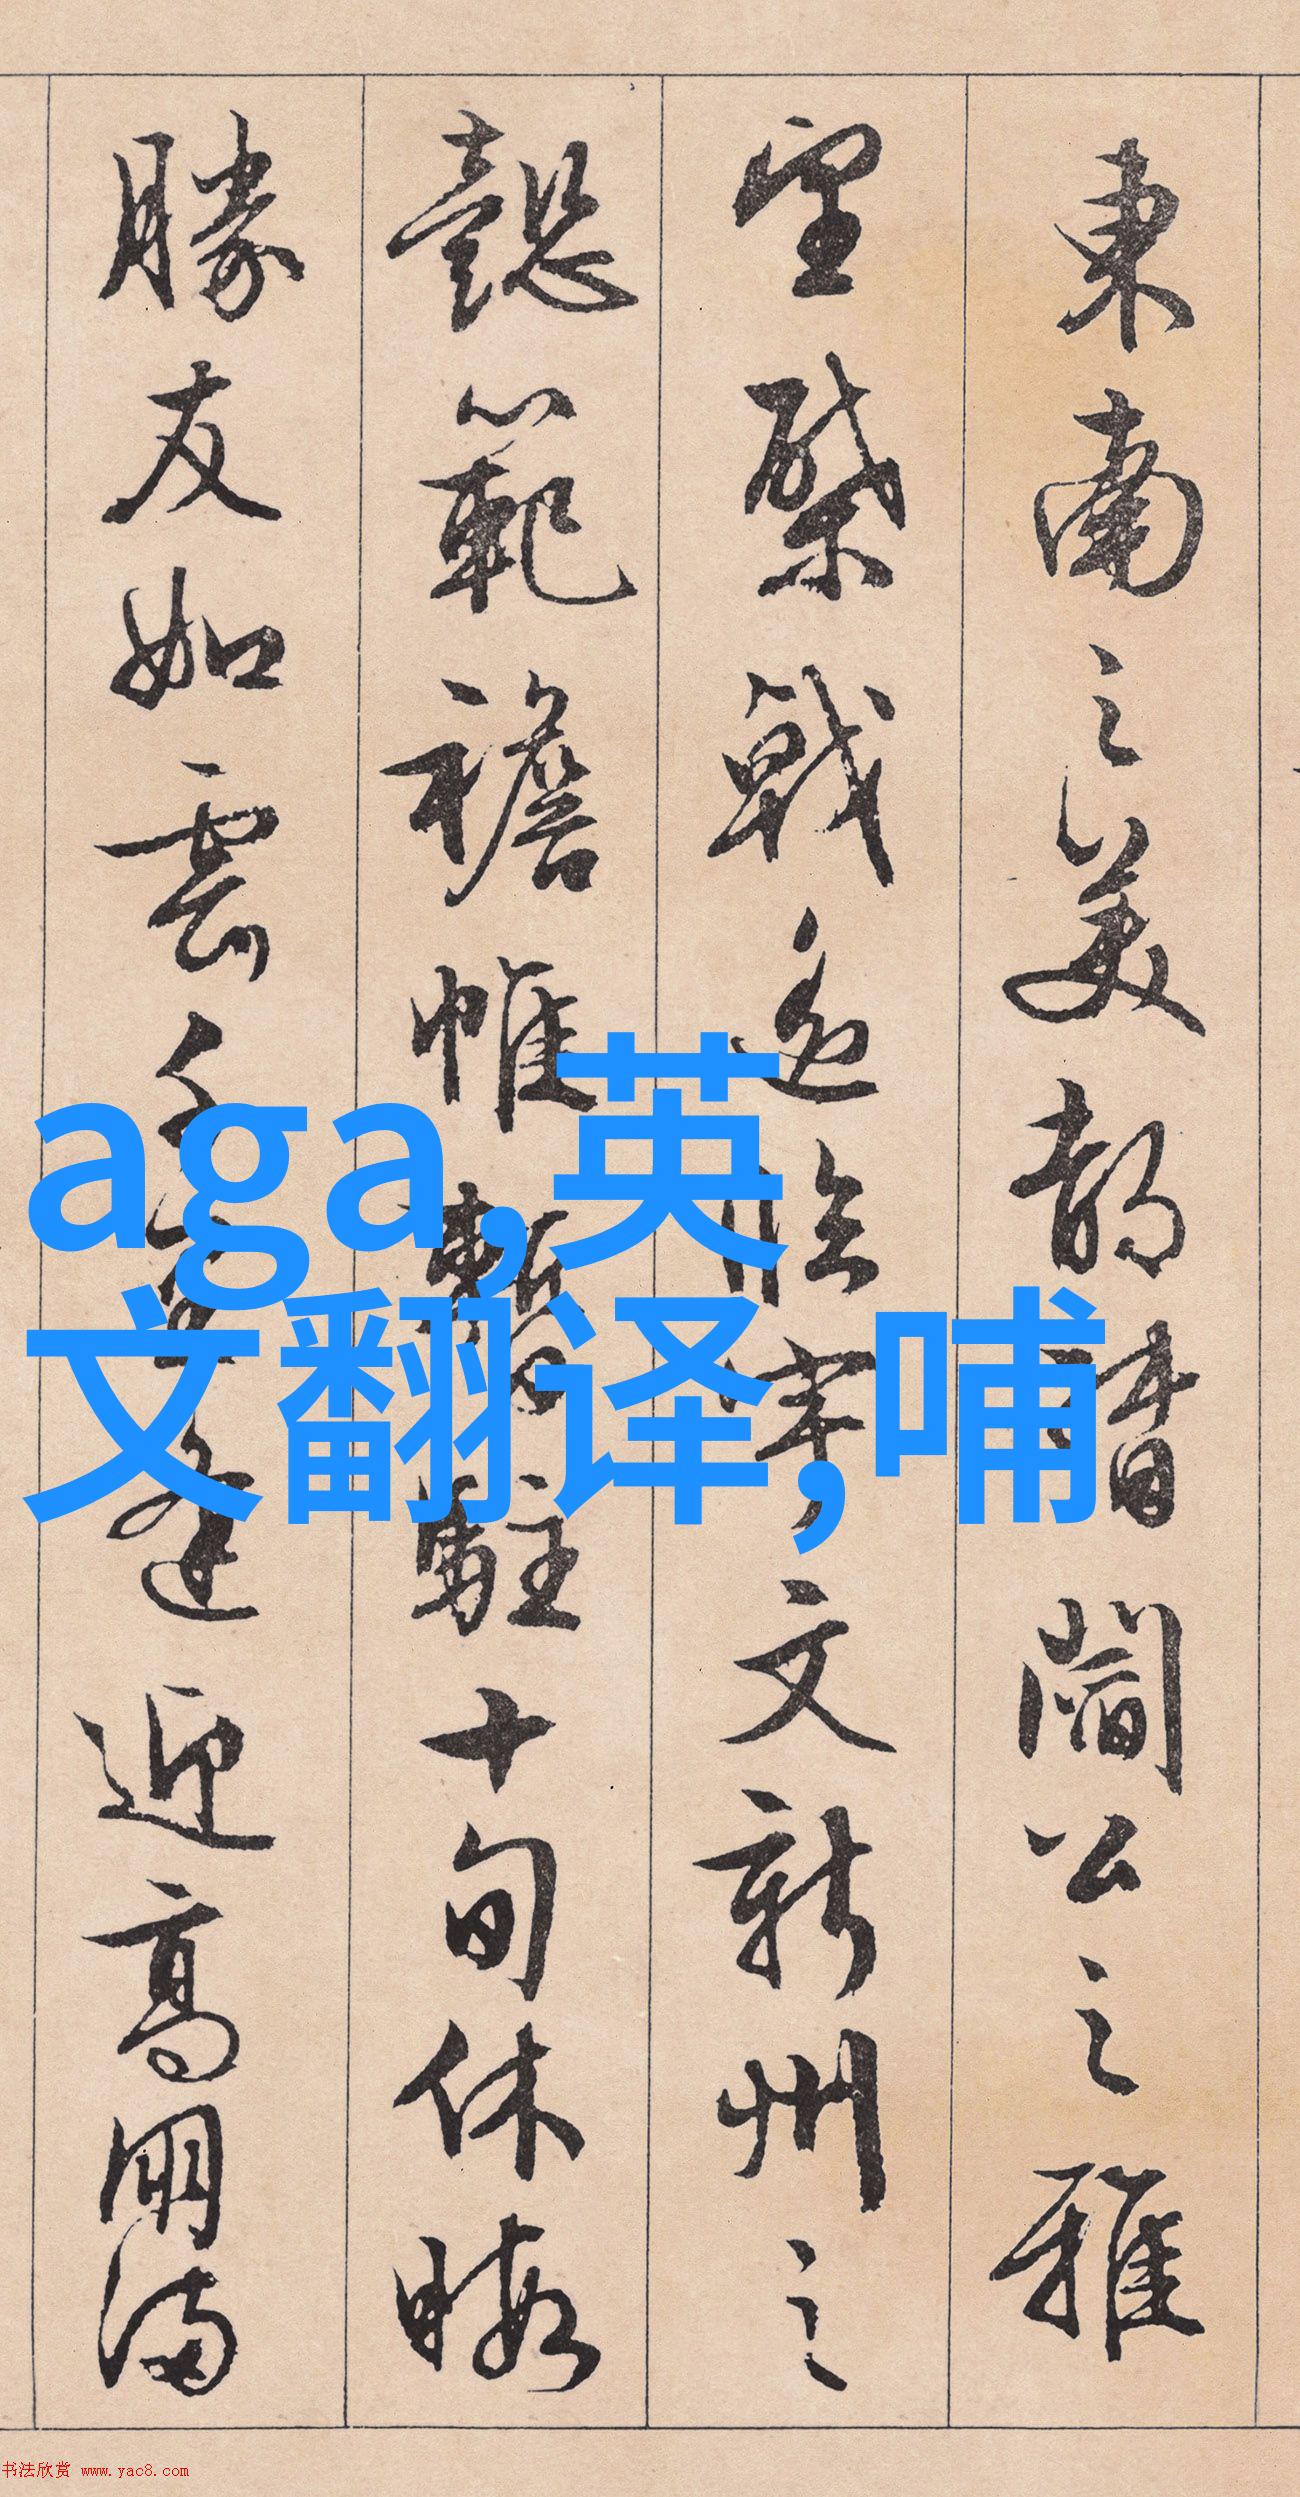 東南之美都督閻公之雅
望棨戟遥臨宇文新州之
懿範襜帷暫駐十旬休暇
勝友如雲千里逢迎高朋滿
aga,英
文翻译,哺
书法欣赏 www.yac8.com